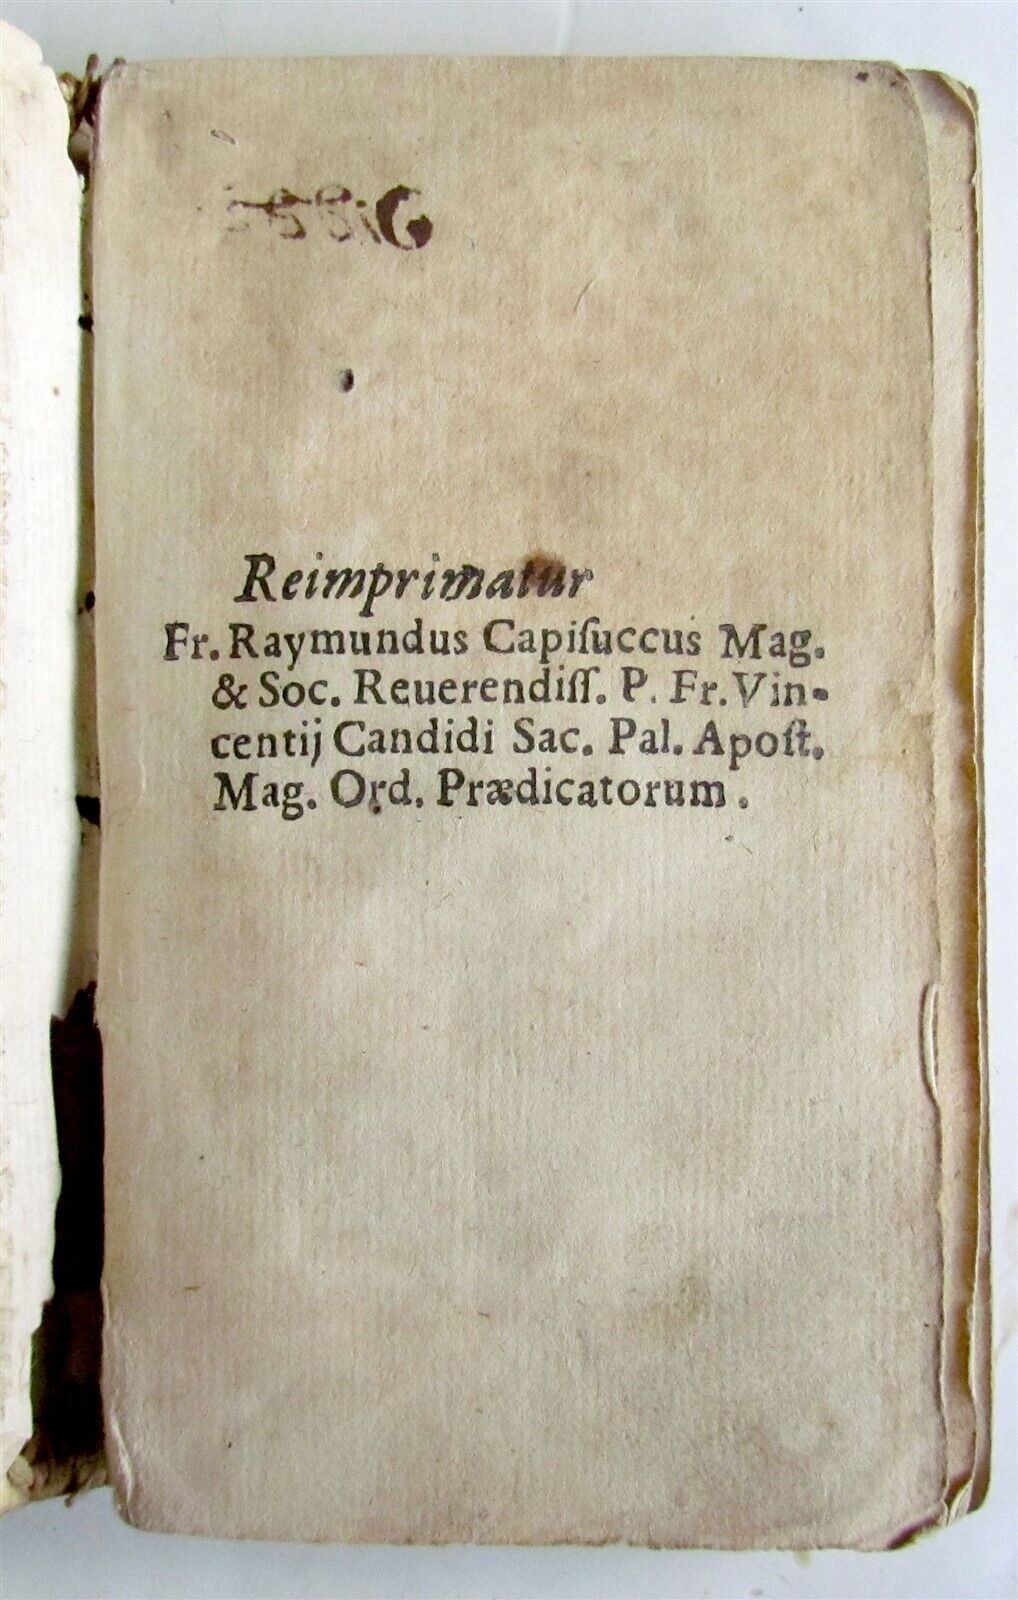 Reimprimatur
Fr. Raymundus Capiſuccus Mag.
& Soc. Reuerendiſſ. P. Fr. Vin-
centij Candidi Sac. Pal. Apoſt.
Mag. Ord. Prædicatorum.